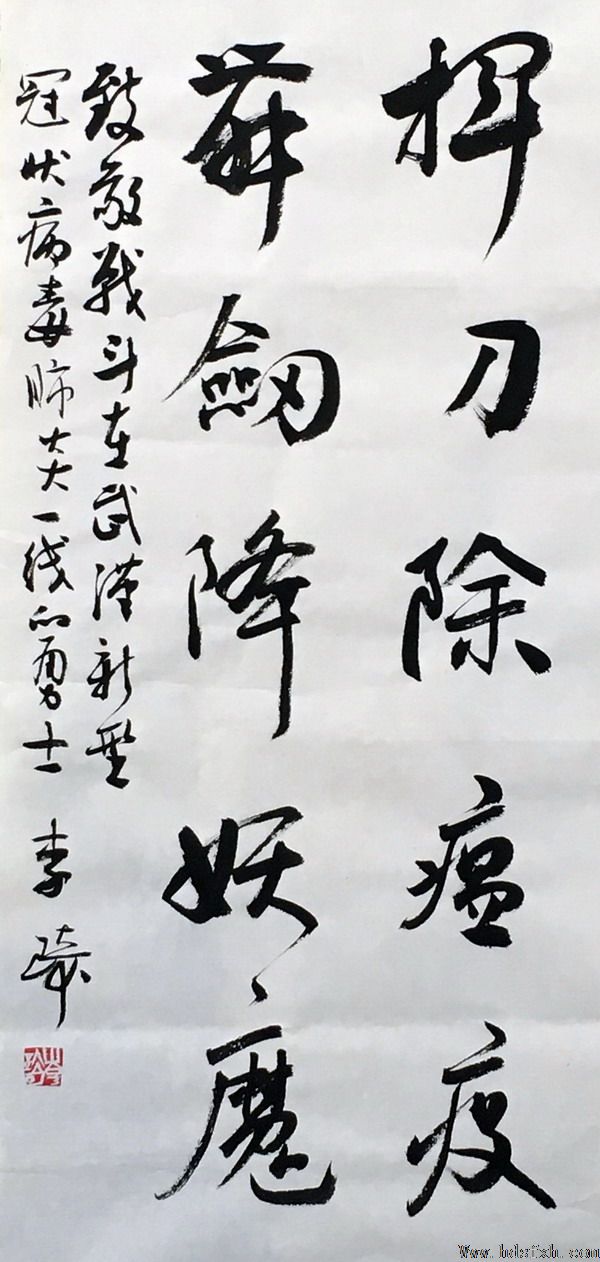 挥刀除瘟疫
舞劔降妖魔
致敬战斗在武漢新型
冠状病毒肺炎一线的勇士 李